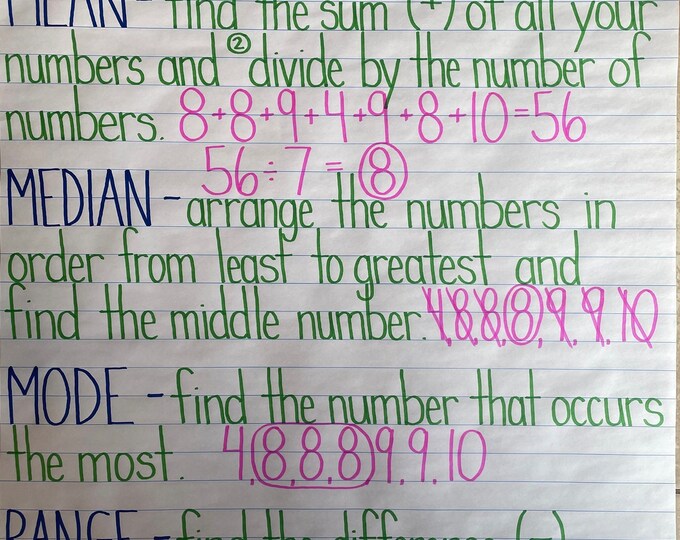 MEAN - find the sum (+) of all your
numbers and ② divide by the number of
numbers. 8+8+9+4+9+8+10=56
56÷7=8
MEDIAN - arrange the numbers in
order from least to greatest and
find the middle number. 4,8,8,8,9,9,10
MODE - find the number that occurs
the most. 4,8,8,8,9,9,10
RANGE - find the difference (-)